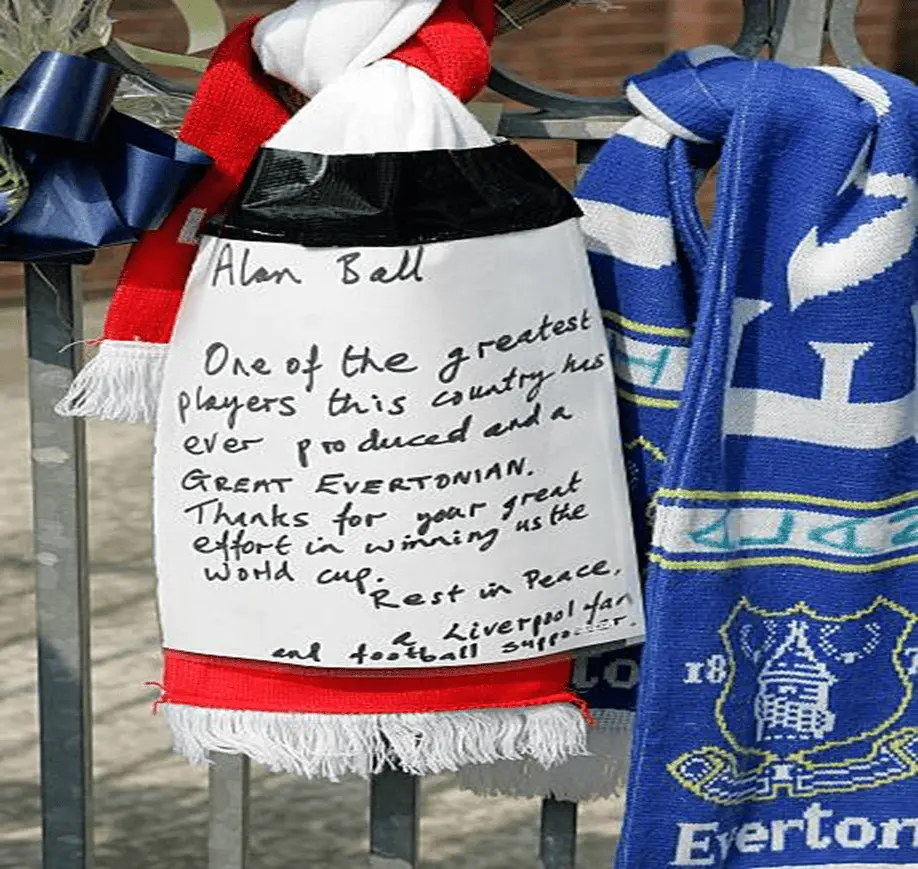 Alan Ball
One of the greatest
players this country has
ever produced and a
GREAT EVERTONIAN.
Thanks for your great
effort in winning us the
world cup.
Rest in Peace.
a Liverpool fan
and football supporter.
18
Everton